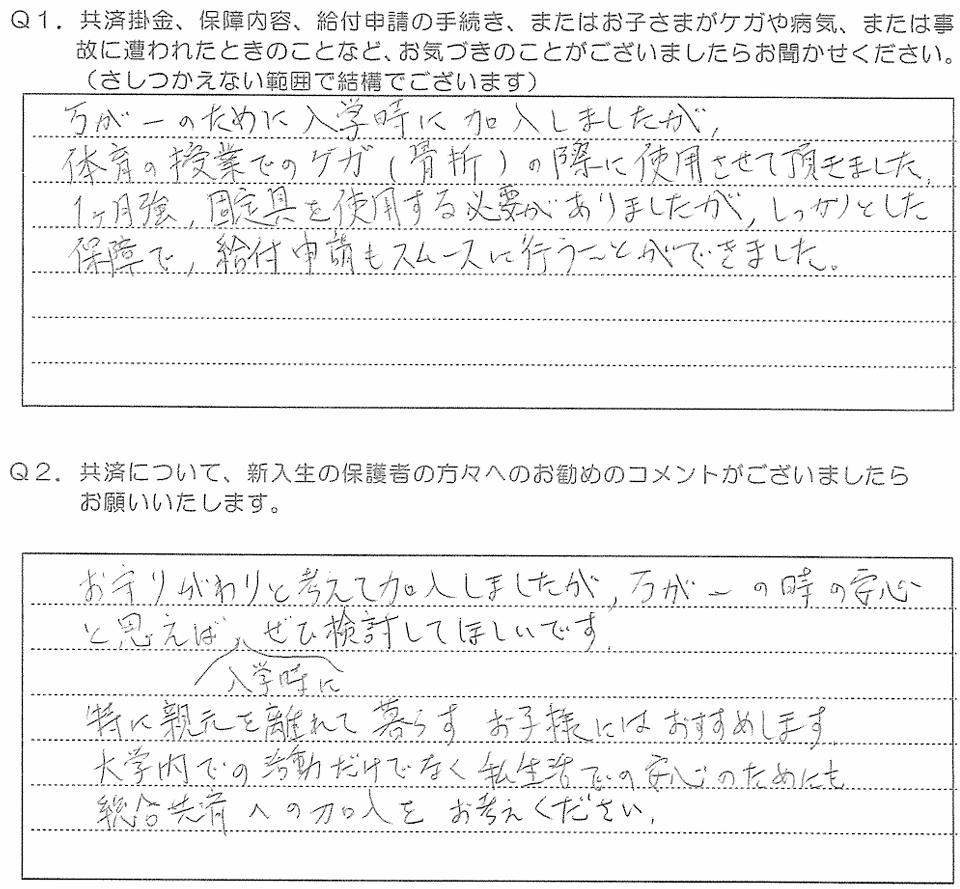 Q1. 共済掛金、保障内容、給付申請の手続き、またはお子さまがケガや病気、または事
故に遭われたときのことなど、お気づきのことがございましたらお聞かせください。
（さしつかえない範囲で結構でございます）
万が一のために入学時に加入しましたが、
体育の授業でのケガ（骨折）の際に使用させて頂きました。
1ヶ月強、固定具を使用する必要がありましたが、しっかりとした
保障で、給付申請もスムースに行うことができました。
Q2. 共済について、新入生の保護者の方々へのお勧めのコメントがございましたら
お願いいたします。
お守りがわりと考えて加入しましたが、万が一の時の安心
と思えば、ぜひ検討してほしいです。
入学時に
特に親元を離れて暮らすお子様にはおすすめします。
大学内での活動だけでなく私生活での安心のためにも
総合共済への加入をお考えください。